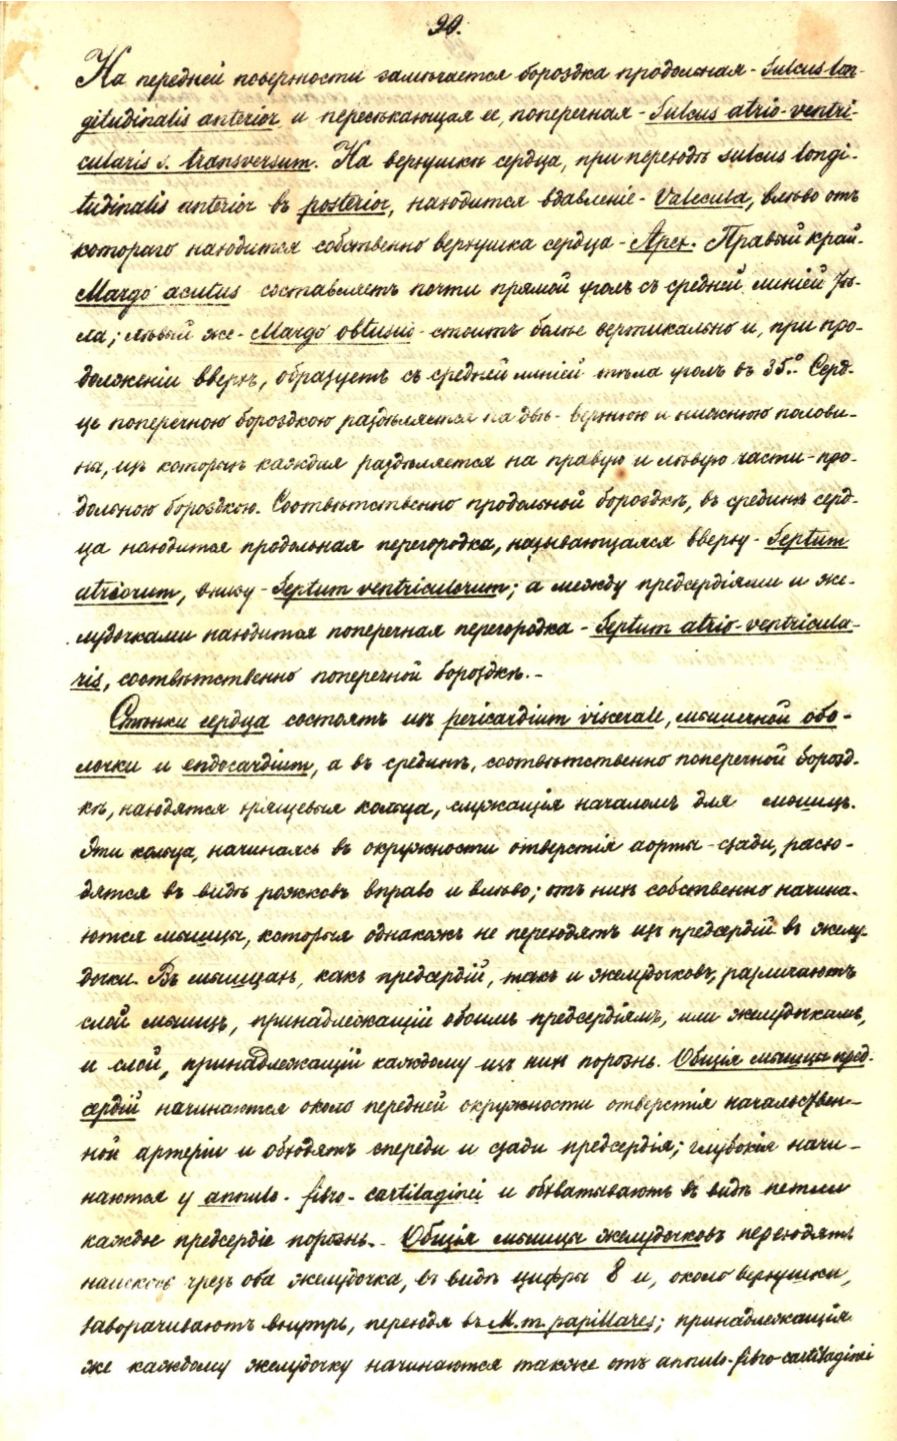 90.
На передней поверхности замѣчается бороздка продольная - Sulcus lon-
gitudinalis anterior и пересѣкающая ее, поперечная - Sulcus atrio-ventri-
cularis s. transversum. На верхушкѣ сердца, при переходѣ sulcus longi-
tudinalis anterior въ posterior, находится вдавленіе - Valecula, влѣво отъ
котораго находится собственно верхушка сердца - Apex. Правый край -
Margo acutus составляетъ почти прямой уголъ съ средней линіей тѣ-
ла; лѣвый же - Margo obtusus - стоитъ болѣе вертикально и, при про-
долженіи вверхъ, образуетъ съ средней линіей тѣла уголъ въ 35°. Серд-
це поперечною бороздкою раздѣляется на двѣ - верхнюю и нижнюю полови-
ны, изъ которыхъ каждая раздѣляется на правую и лѣвую части - про-
дольною бороздкою. Соотвѣтственно продольной бороздкѣ, въ срединѣ серд-
ца находится продольная перегородка, называющаяся вверху - Septum
atriorum, внизу - Septum ventriculorum; а между предсердіями и же-
лудочками находится поперечная перегородка - Septum atrio-ventricula-
ris, соотвѣтственно поперечной бороздкѣ. -
Стѣнки сердца состоятъ изъ pericardium viscerale, мышечной обо-
лочки и endocardium, а въ срединѣ, соотвѣтственно поперечной борозд-
кѣ, находятся хрящевыя кольца, служащія началомъ для мышцъ.
Эти кольца, начинаясь въ окружности отверстія аорты - сзади, расхо-
дятся въ видѣ рожковъ вправо и влѣво; отъ нихъ собственно начина-
ются мышцы, которыя однакожъ не переходятъ изъ предсердій въ желу-
дочки. Въ мышцахъ, какъ предсердій, такъ и желудочковъ, различаютъ
слой мышцъ, принадлежащій обоимъ предсердіямъ, или желудочкамъ,
и слой, принадлежащій каждому изъ нихъ порознь. Общія мышцы пред-
сердій начинаются около передней окружности отверстія
ной артеріи и обходятъ спереди и сзади предсердія; глубокія начи-
наются у annulo - fibro - cartilaginei и обхватываютъ въ видѣ петли
каждое предсердіе порознь. - Общія мышцы желудочковъ переходятъ
наискось чрезъ оба желудочка, въ видѣ цифры 8 и, около верхушки,
заворачиваютъ внутрь, переходя въ M.m. papillares; принадлежащія
же каждому желудочку начинаются также отъ annulo-fibro-cartilaginei